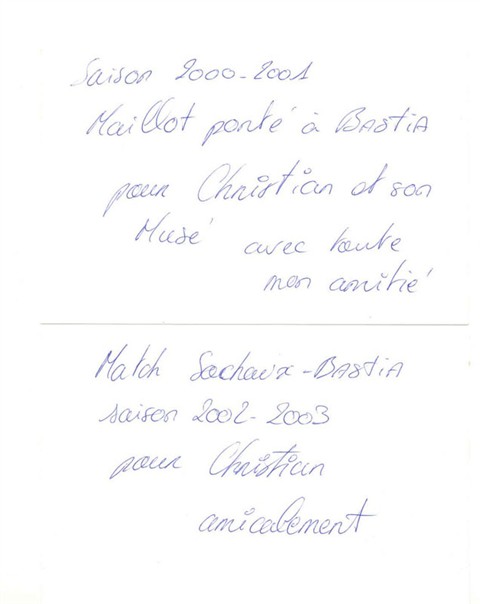 Saison 2000-2001
Maillot porté à BASTIA
pour Christian et son
Musé avec toute
mon amitié
Match Sochaux-BASTIA
saison 2002-2003
pour Christian
amicalement